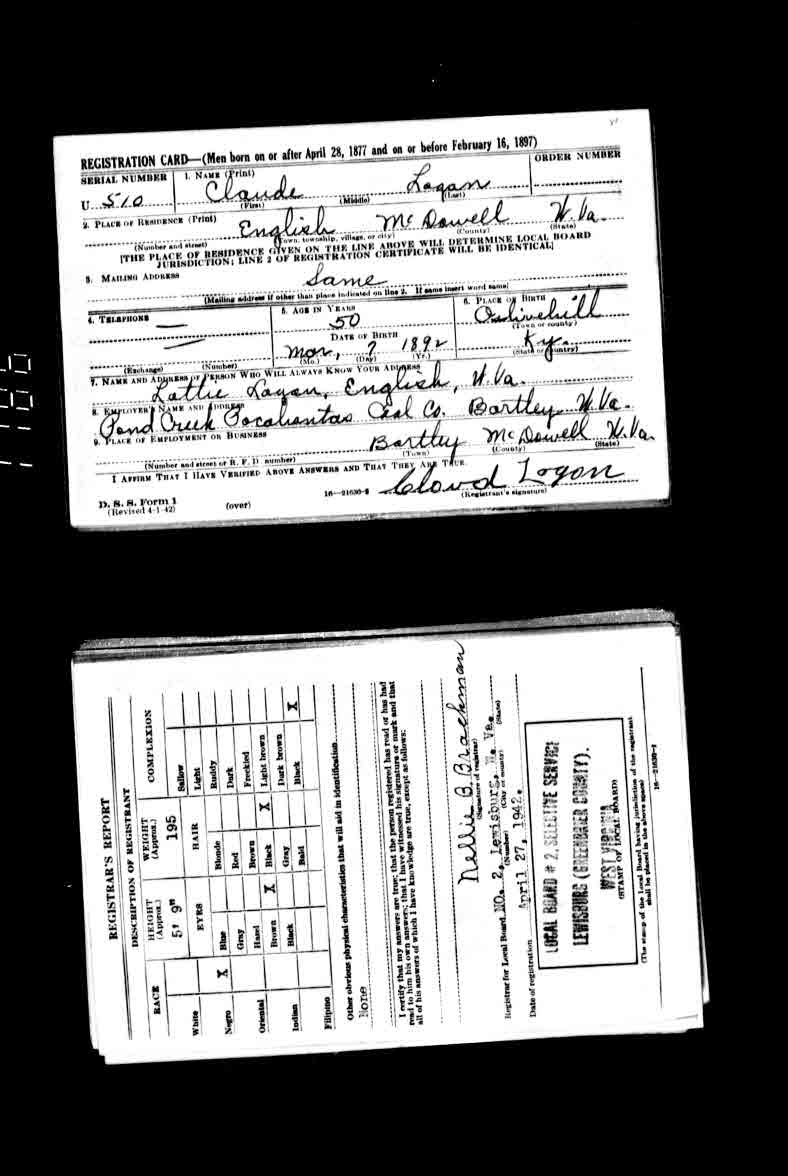 REGISTRATION CARD—(Men born on or after April 28, 1877 and on or before February 16, 1897)
SERIAL NUMBER
1. NAME (Print)
ORDER NUMBER
U 510
Claude Logan
(First) (Middle) (Last)
2. PLACE OF RESIDENCE (Print)
English McDowell W. Va.
(Number and street) (Town, township, village, or city) (County) (State)
[THE PLACE OF RESIDENCE GIVEN ON THE LINE ABOVE WILL DETERMINE LOCAL BOARD
JURISDICTION; LINE 2 OF REGISTRATION CERTIFICATE WILL BE IDENTICAL]
3. MAILING ADDRESS
Same
(Mailing address if other than place indicated on line 2. If same insert word same)
4. TELEPHONE
5. AGE IN YEARS
6. PLACE OF BIRTH
—
50
Oulivehill
(Town or county)
—
DATE OF BIRTH
Mar, ? 1892
Ky.
(Exchange) (Number)
(Mo.) (Day) (Yr.)
(State or country)
7. NAME AND ADDRESS OF PERSON WHO WILL ALWAYS KNOW YOUR ADDRESS
Lottie Logan, English, W. Va.
8. EMPLOYER'S NAME AND ADDRESS
Pond Creek Pocahontas Coal Co. Bartley W. Va.
9. PLACE OF EMPLOYMENT OR BUSINESS
Bartley McDowell W. Va.
(Number and street or R. F. D. number) (Town) (County) (State)
I AFFIRM THAT I HAVE VERIFIED ABOVE ANSWERS AND THAT THEY ARE TRUE.
Clowd Logan
D. S. S. Form 1
(Revised 4-1-42)
(over)
16—21630-2
(Registrant's signature)
REGISTRAR'S REPORT
DESCRIPTION OF REGISTRANT
RACE
HEIGHT (Approx.)
WEIGHT (Approx.)
COMPLEXION
5' 9"
195
EYES
HAIR
White
Negro X
Oriental
Indian
Filipino
Blue
Gray
Hazel
Brown X
Black
Blonde
Red
Brown
Black X
Gray
Bald
Sallow
Light
Ruddy
Dark
Freckled
Light brown
Dark brown
Black X
Other obvious physical characteristics that will aid in identification
None
I certify that my answers are true; that the person registered has read or has had
read to him his own answers; that I have witnessed his signature or mark and that
all of his answers of which I have knowledge are true, except as follows:
Nellie B. Brackman
(Signature of registrar)
Registrar for Local Board NO. 2, Lewisburg, W. Va.
(Number) (City or county) (State)
Date of registration April 27, 1942.
LOCAL BOARD # 2, SELECTIVE SERVICE
LEWISBURG (GREENBRIER COUNTY).
WEST VIRGINIA
(STAMP OF LOCAL BOARD)
(The stamp of the Local Board having jurisdiction of the registrant
shall be placed in the above space)
16—21630-1